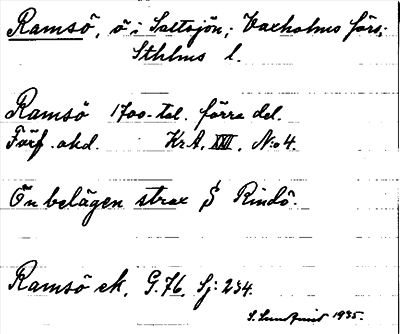 Ramsö, ö i Saltsjön; Vaxholms förs;
Sthlms l.
Ramsö 1700-tal. förra del.
Förf. okd. Kr.A. XXII. N:o 4.
Ön belägen strax S Rindö.
Ramsö ek. G.76. Sj: 234.
S. Lundquist 1935.